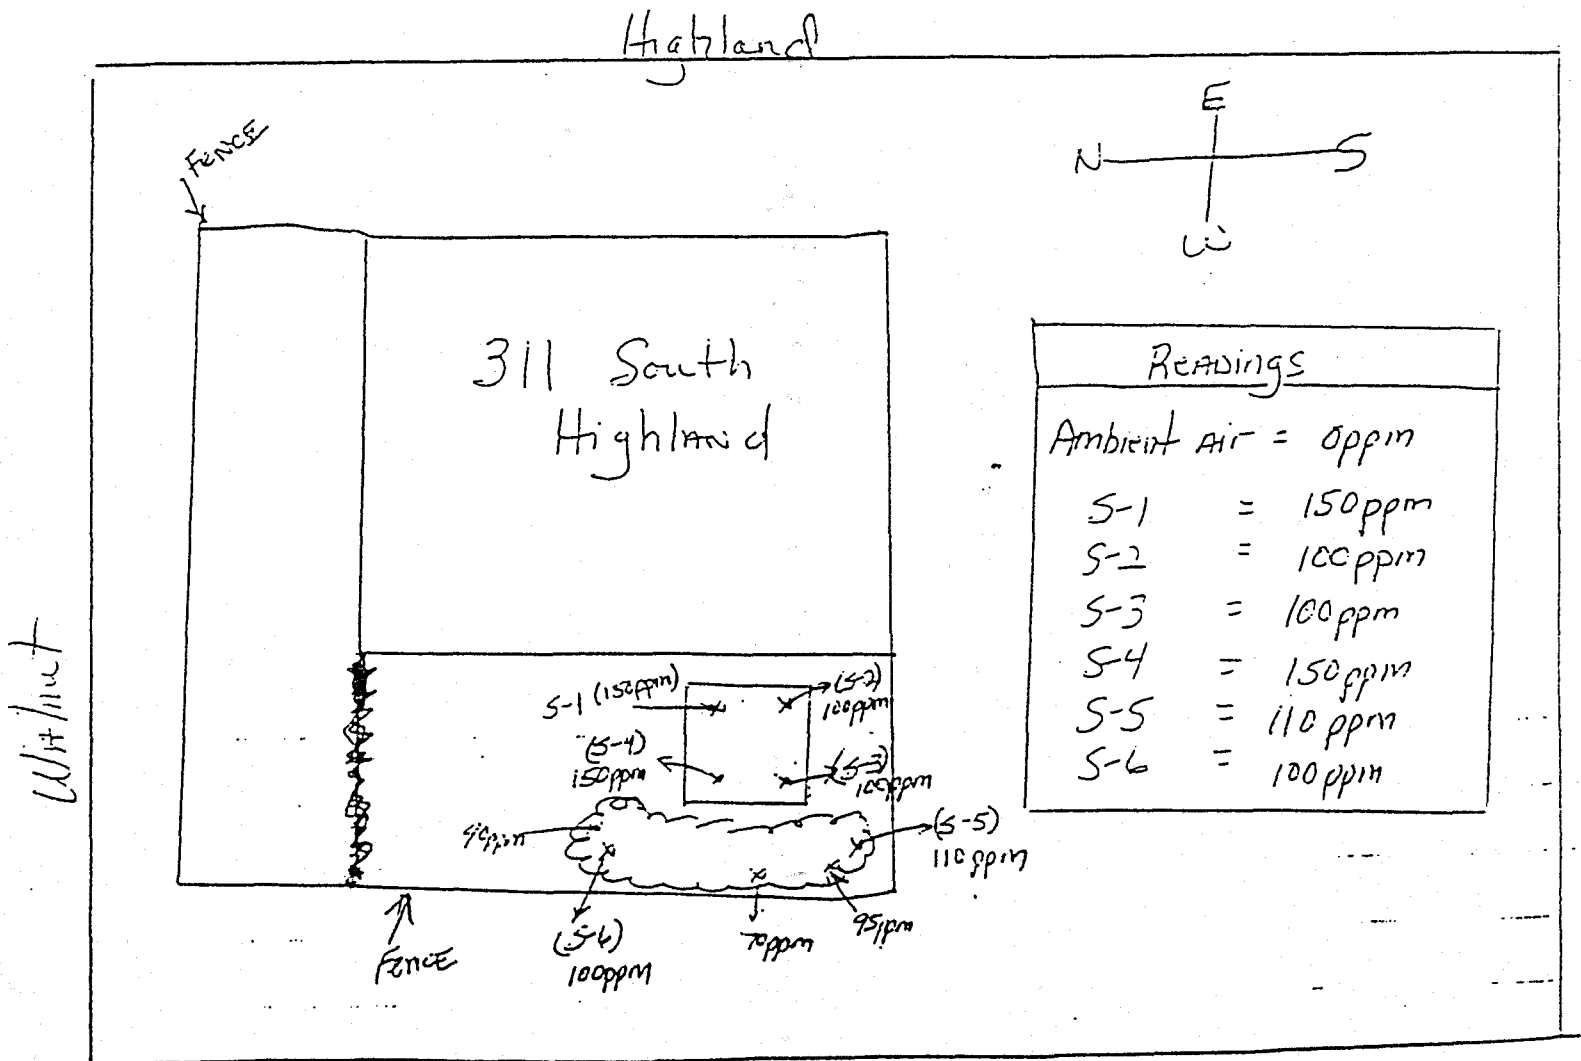 Highland
FENCE
E
N S
W
311 South
Highland
Readings
Ambient Air = 0ppm
S-1 = 150ppm
S-2 = 100ppm
S-3 = 100ppm
S-4 = 150ppm
S-5 = 110ppm
S-6 = 100ppm
S-1 (150ppm)
(S-2)
100ppm
(S-4)
150ppm
(S-3)
100ppm
(S-5)
110ppm
(S-6)
100ppm
70ppm
95ppm
FENCE